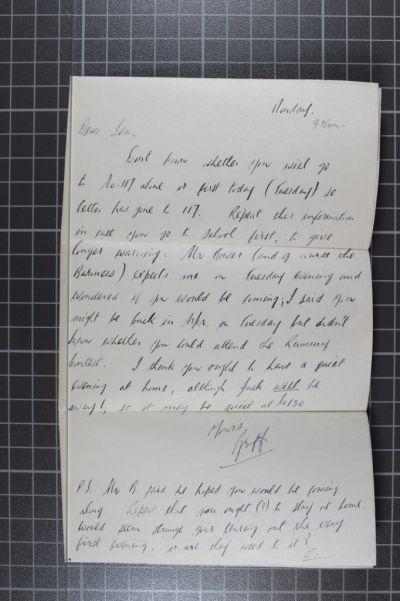 Monday.
9.15am.
Dear Len,
Don't know whether you will go
to No. 117 alone or first today (Tuesday) so
letter has gone to 117. Repeat this information
in case you go to school first, to give
longer warning: Mr Bower (and of course the
Business) expects me on Tuesday evening and
wondered if you would be coming; I said you
might be back in on Tuesday but didn't
know whether you could attend the
contest. I think you ought to have a quiet
evening at home, although Jack will be
away!, so it may be quiet at
Yours,
Griff
PS. Mr B said he hoped you would be coming
along. Repeat that you ought (?) to stay at home.
Would seem strange your tearing out the very
first evening, or are they used to it?